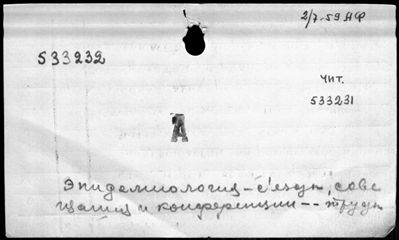 2/7-59 АФ
533232
чит.
533231
А
Эпидемиология - с'езды, сове
щания и конференции -- труды